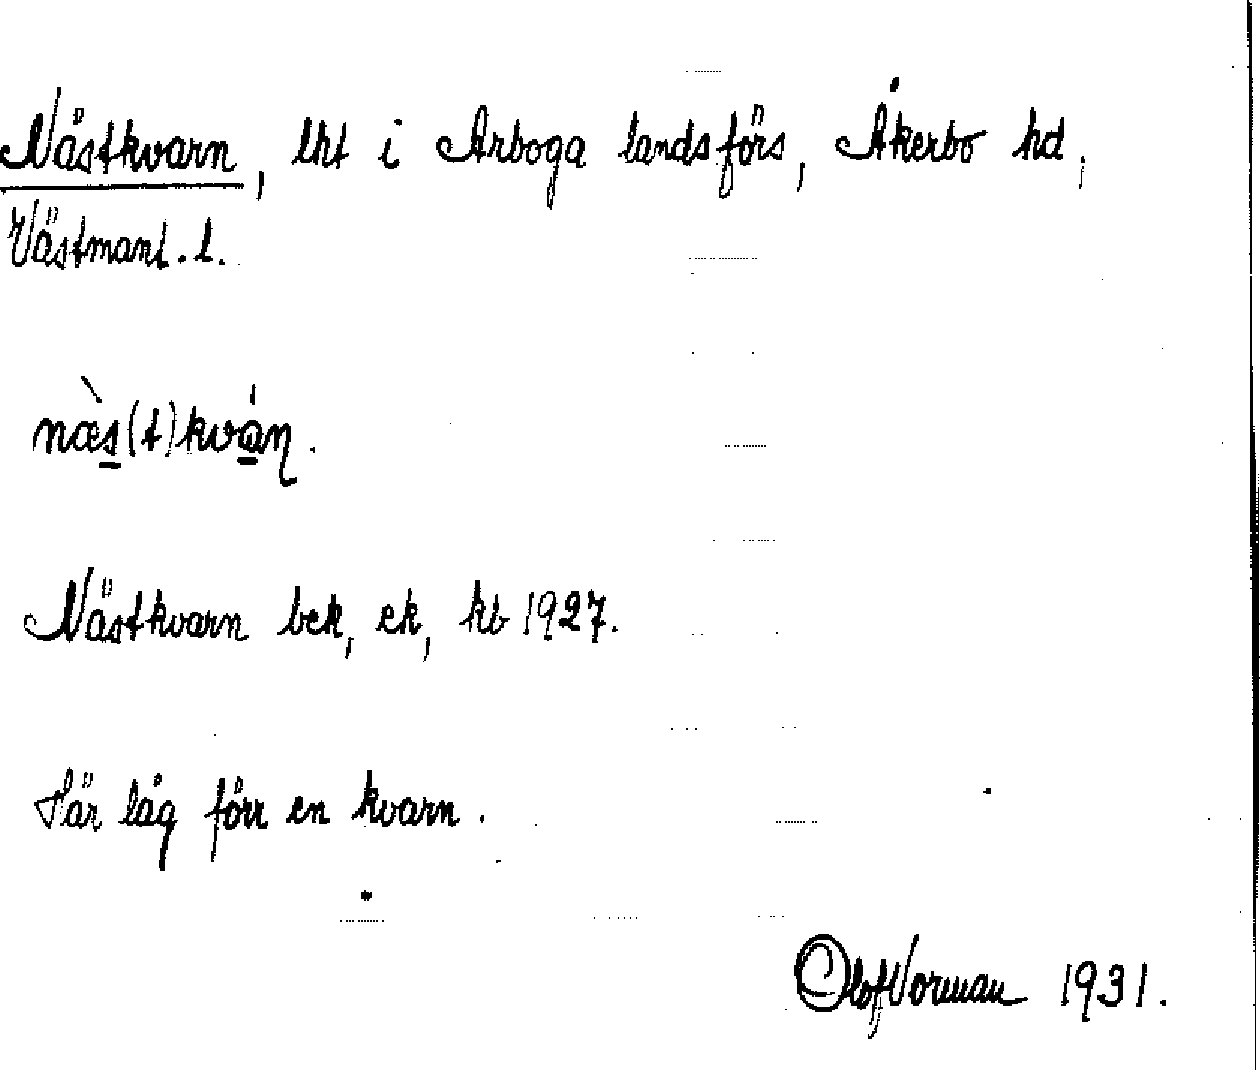 Nästkvarn, lht i Arboga landsförs, Åkerbo hd,
Västmanl. l.
næ̀s̲(t)kvá̲ṇ.
Nästkvarn bek, ek, kb 1927.
Här låg förr en kvarn.
Olof Norman 1931.